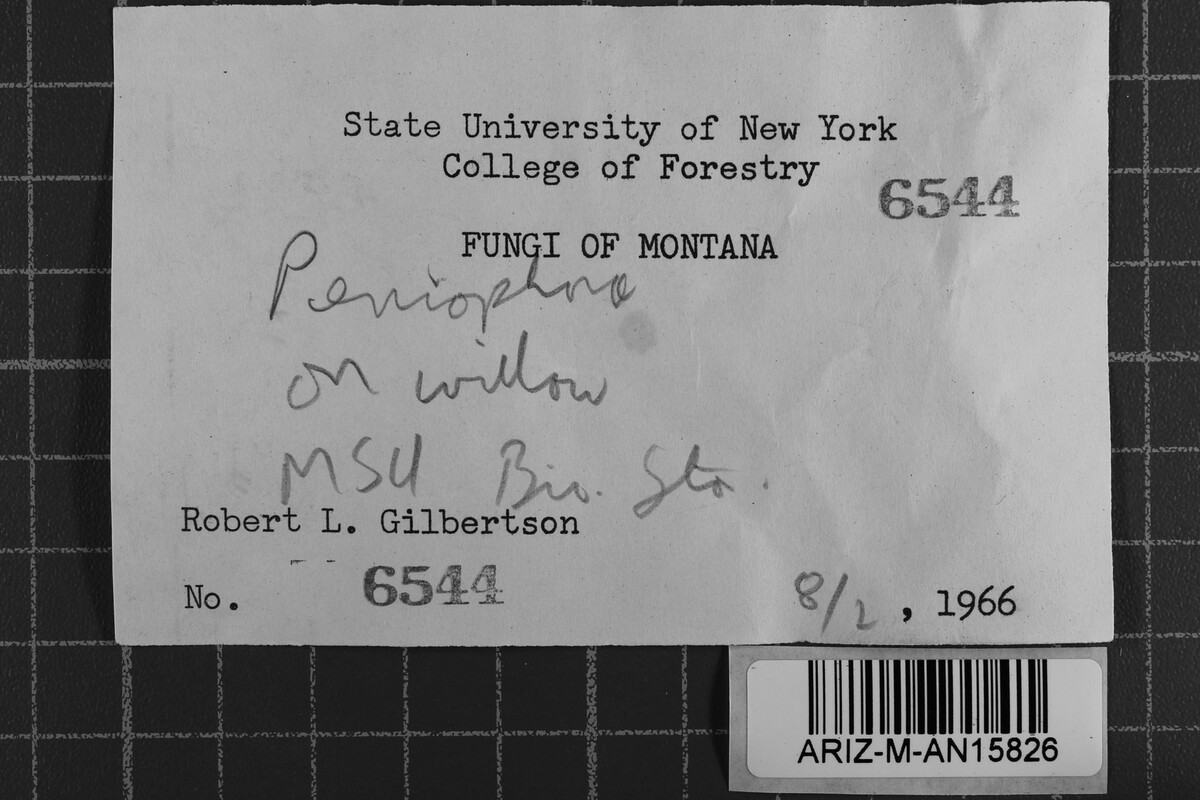 State University of New York
College of Forestry
6544
FUNGI OF MONTANA
Peniophora
on willow
MSU Bio. Sta.
Robert L. Gilbertson
No. 6544
8/2, 1966
ARIZ-M-AN15826